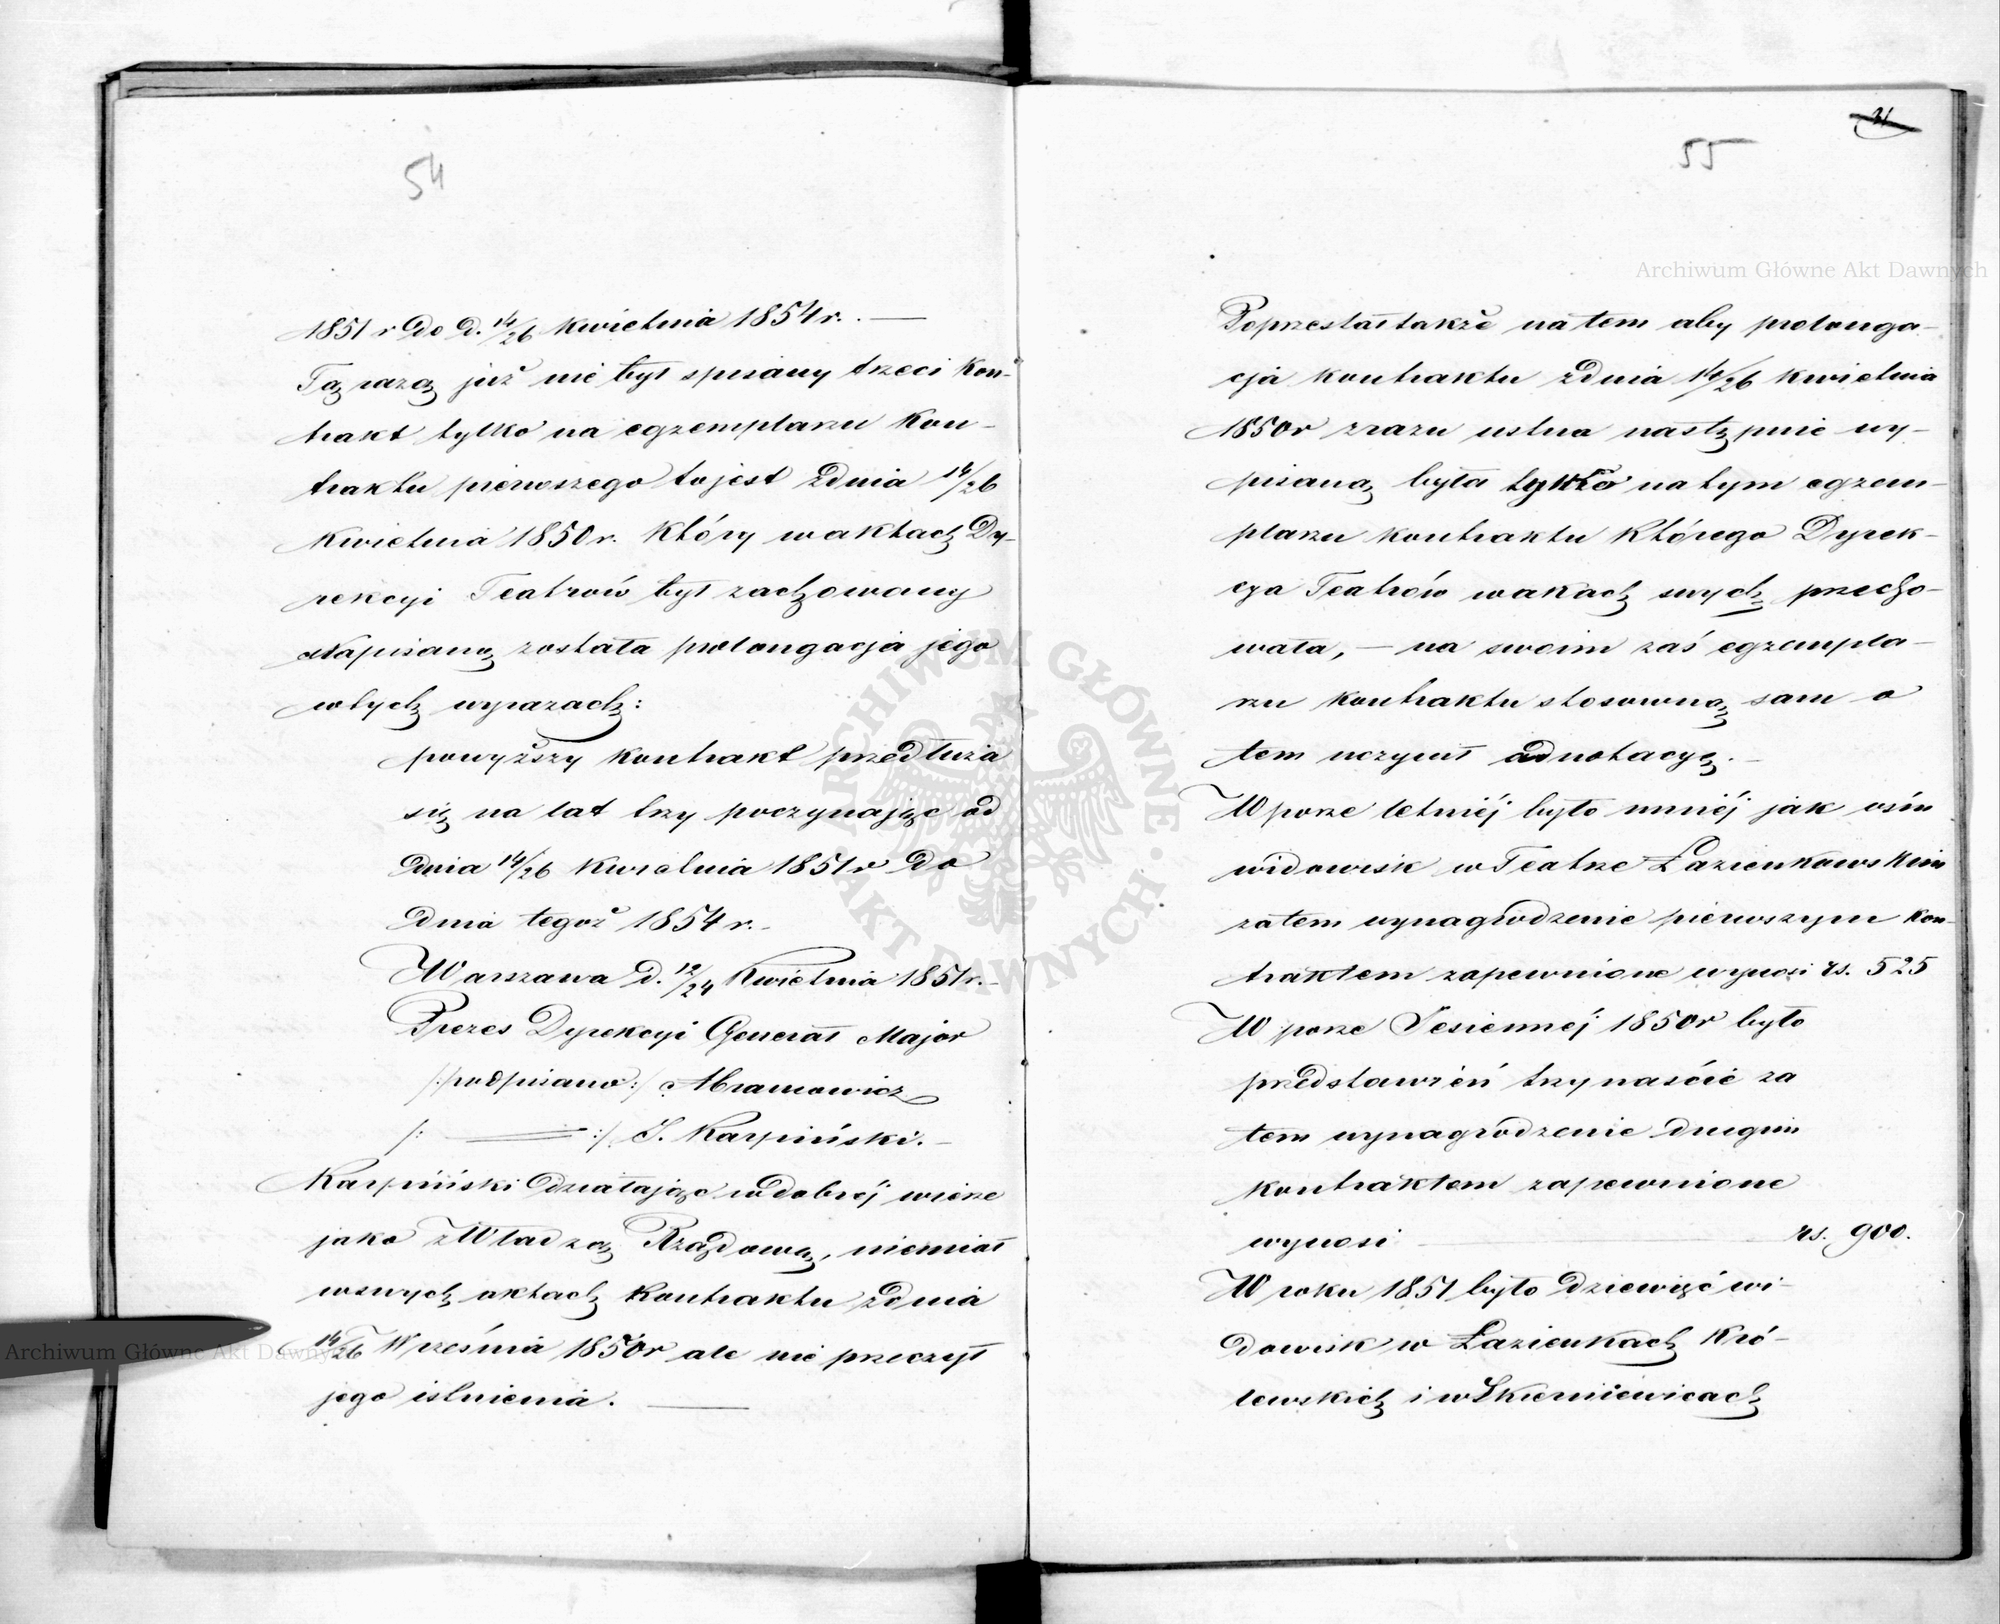 54
1851 r do d. 14/26 Kwietnia 1854 r. —
Tą razą już nie był spisany trzeci Kon-
trakt tylko na egzemplarzu Kon-
traktu pierwszego to jest z dnia 14/26
Kwietnia 1850 r. który w aktach Dy-
rekcyi Teatrów był zachowany
napisaną została prolongacja jego
w tych wyrazach:
powyższy Kontrakt przedłuża
się na lat trzy poczynając od
dnia 14/26 Kwietnia 1851 r do
dnia tegoż 1854 r. -
Warszawa d. 12/24 Kwietnia 1851 r. -
Prezes Dyrekcyi Generał Major
/:podpisano:/ Abramowicz
/: ——— :/ J. Karpiński. -
Karpiński działając w dobrej wierze
jako z Władzą Rządową, niemiał
w swych aktach Kontraktu z dnia
14/26 Września 1850 r ale nie przeczył
jego istnienia. —
31
55
Poprzestał także na tem aby prolonga-
cja Kontraktu z dnia 14/26 Kwietnia
1850 r zrazu ustna następnie wy-
pisaną była tylko na tym egzem-
plarzu Kontraktu którego Dyrek-
cya Teatrów w aktach swych przecho-
wała, — na swoim zaś egzempla-
rzu Kontraktu stosowną sam o
tem uczynił adnotacyą. -
W porze letniéj było mniéj jak ośm
widowisk w Teatrze Łazienkowskim
zatem wynagrodzenie pierwszym kon-
traktem zapewnione wynosi rs. 525
W porze Jesiennéj 1850 r było
przedstawień trzynaście za
tem wynagrodzenie drugim
Kontraktem zapewnione
wynosi ——— rs. 900.
W roku 1851 było dziewięć wi-
dowisk w Łazienkach Kró-
lewskich i w Skierniewicach
Archiwum Główne Akt Dawnych
Archiwum Główne Akt Dawnych
ARCHIWUM GŁÓWNE AKT DAWNYCH